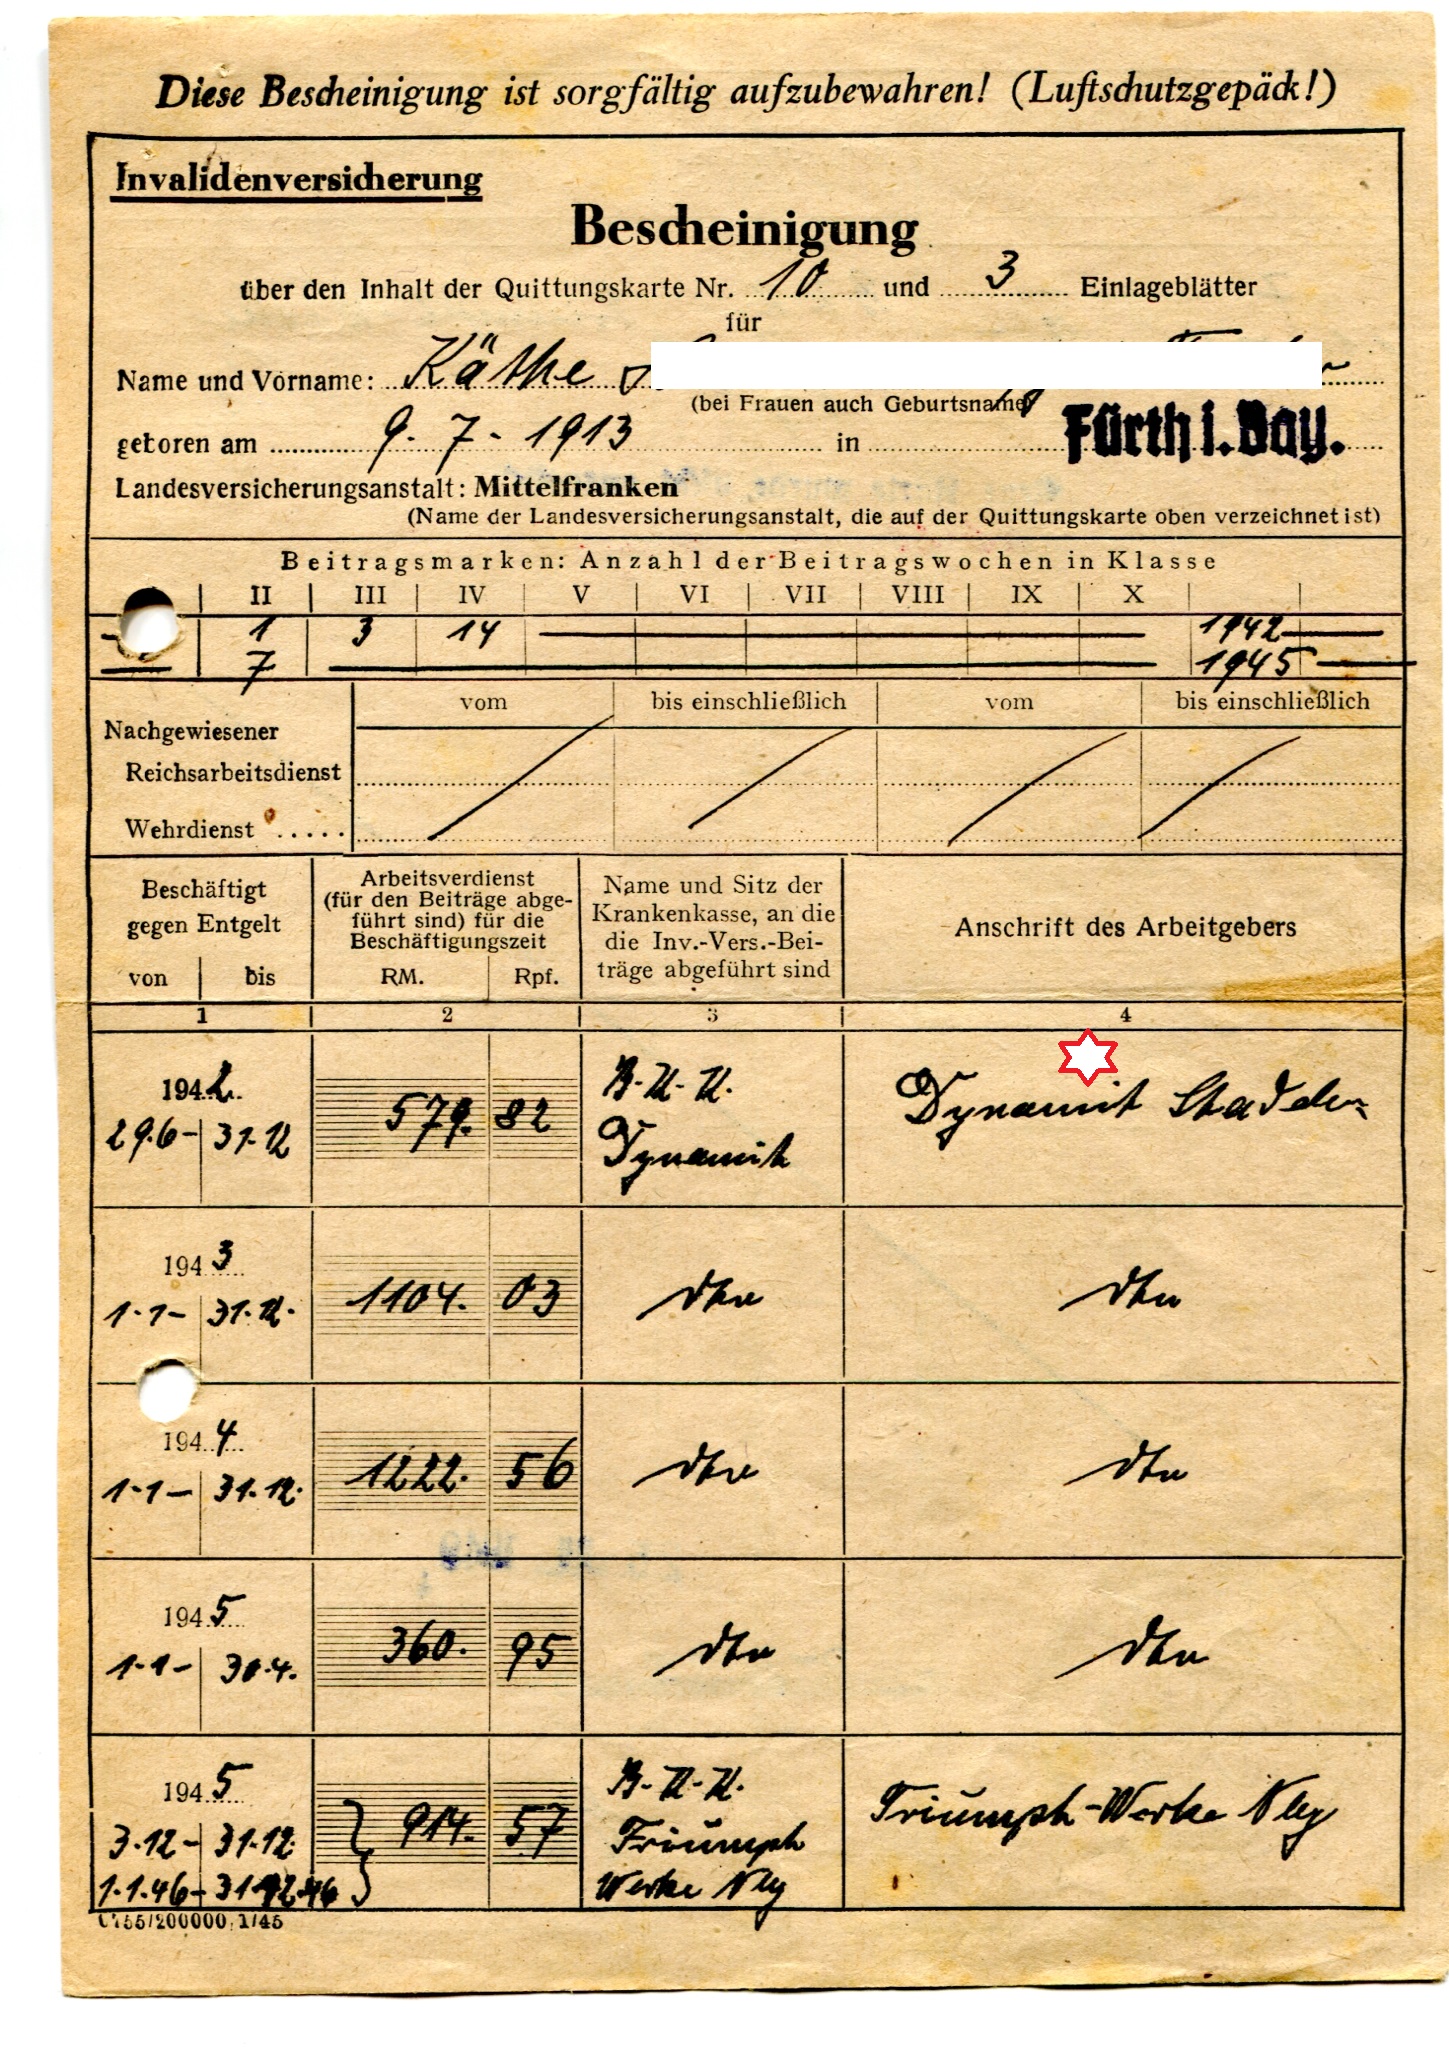 Diese Bescheinigung ist sorgfältig aufzubewahren! (Luftschutzgepäck!)
Invalidenversicherung
Bescheinigung
über den Inhalt der Quittungskarte Nr. 10 und 3 Einlageblätter
für
Name und Vorname: Käthe
(bei Frauen auch Geburtsname)
geboren am 9. 7. 1913 in Fürth i. Bay.
Landesversicherungsanstalt: Mittelfranken
(Name der Landesversicherungsanstalt, die auf der Quittungskarte oben verzeichnet ist)
Beitragsmarken: Anzahl der Beitragswochen in Klasse
II III IV V VI VII VIII IX X
1 3 14 1942
7 1945
vom bis einschließlich vom bis einschließlich
Nachgewiesener
Reichsarbeitsdienst
Wehrdienst .....
Beschäftigt gegen Entgelt
von bis
Arbeitsverdienst
(für den Beiträge abge-
führt sind) für die
Beschäftigungszeit
RM. Rpf.
Name und Sitz der
Krankenkasse, an die
die Inv.-Vers.-Bei-
träge abgeführt sind
Anschrift des Arbeitgebers
1 2 3 4
1942
29.6- 31.12 579. 82 B.K.K. Dynamit Dynamit Stadeln
1943
1.1- 31.12. 1104. 03 dto dto
1944
1.1- 31.12. 1222. 56 dto dto
1945
1.1- 30.4. 360. 95 dto dto
1945
3.12- 31.12. 914. 57 B.K.K. Triumph Werke Nbg Triumph-Werke Nbg
1.1.46- 31.12.46
C/1755/200000 1/45